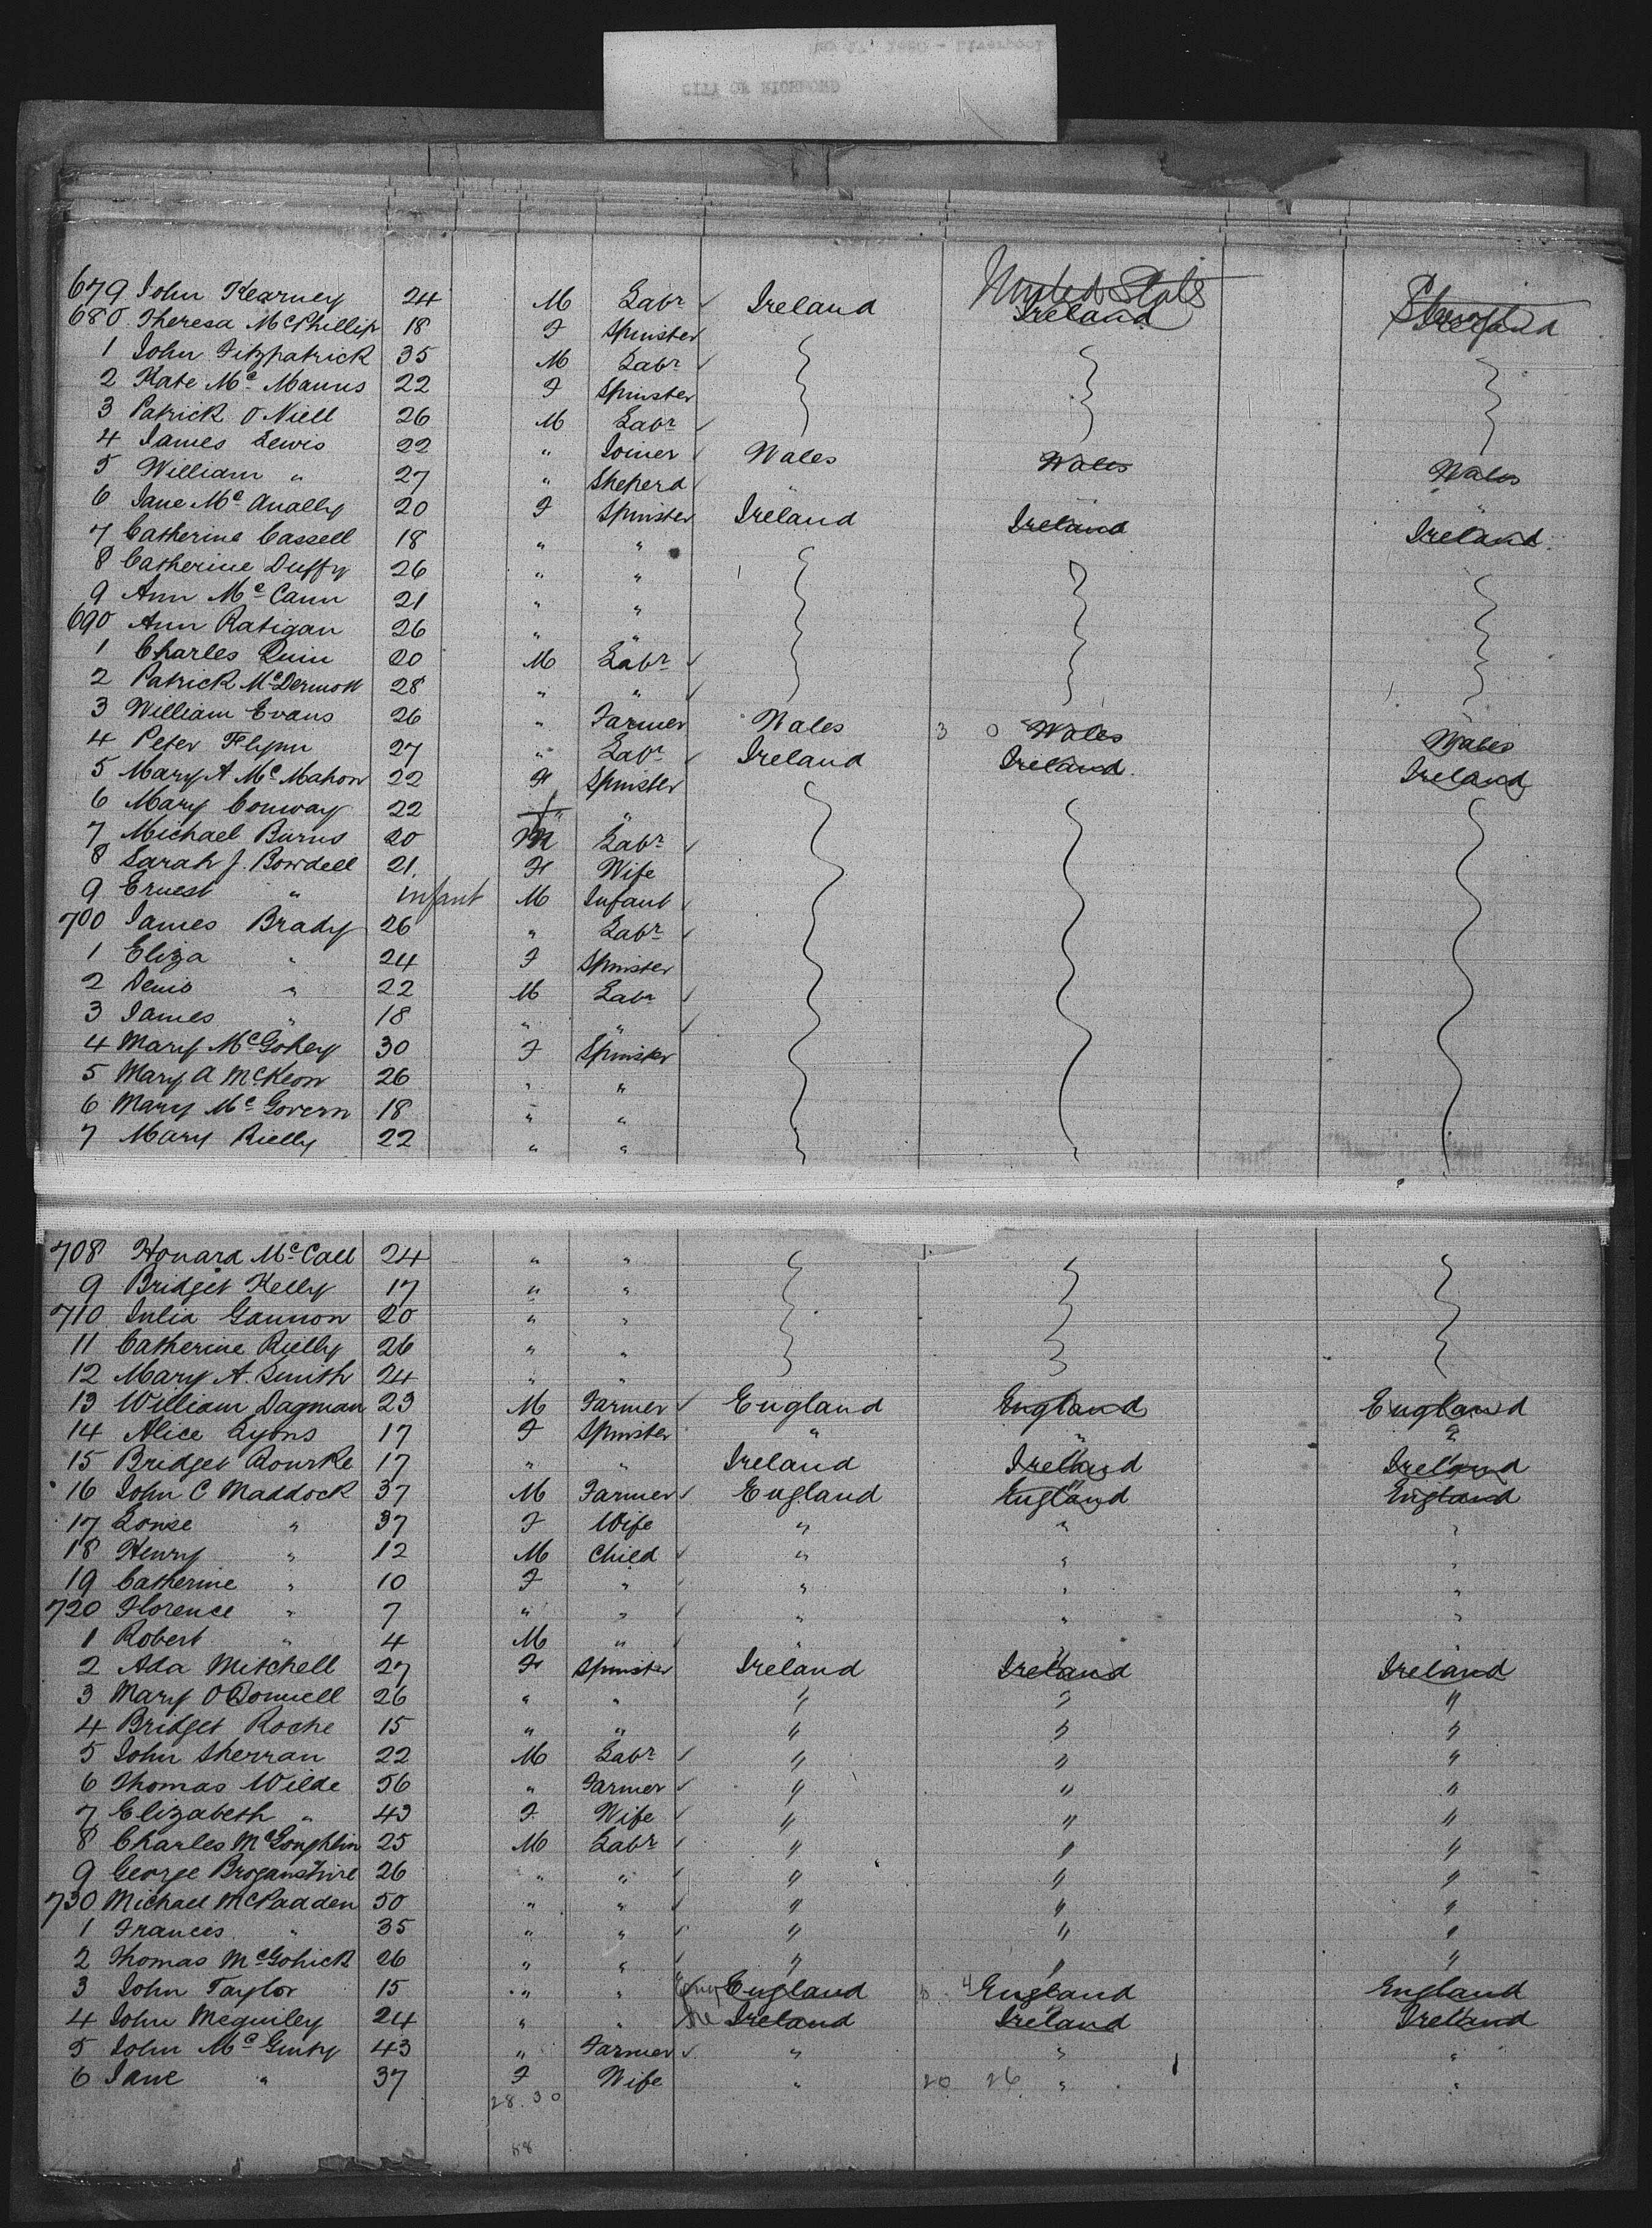 CITY OF RICHMOND
United States
679 John Kearney 24 M Labr ✓ Ireland Ireland
680 Theresa McPhillip 18 F Spinster
1 John Fitzpatrick 35 M Labr ✓
2 Kate Mc Manus 22 F Spinster
3 Patrick O Niell 26 M Labr ✓
4 James Lewis 22 " Joiner ✓ Wales Wales Wales
5 William " 27 " Sheperd ✓ " "
6 Jane Mc Anally 20 F Spinster Ireland Ireland Ireland
7 Catherine Cassell 18 " "
8 Catherine Duffy 26 " "
9 Ann Mc Cann 21 " "
690 Ann Ratigan 26 " "
1 Charles Quin 20 M Labr ✓
2 Patrick McDermott 28 " " ✓
3 William Evans 26 " Farmer Wales 3 0 Wales Wales
4 Peter Flynn 27 " Labr ✓ Ireland Ireland Ireland
5 Mary A Mc Mahon 22 F Spinster
6 Mary Conway 22 " "
7 Michael Burns 20 M Labr ✓
8 Sarah J. Bowdell 21 F Wife
9 Ernest " infant M Infant ✓
700 James Brady 26 " Labr ✓
1 Eliza " 24 F Spinster
2 Denis " 22 M Labr ✓
3 James " 18 " " ✓
4 Mary McGohey 30 F Spinster
5 Mary A McKeon 26 " "
6 Mary Mc Govern 18 " "
7 Mary Rielly 22 " "
708 Honara Mc Call 24 " "
9 Bridget Kelly 17 " "
710 Julia Gannon 20 " "
11 Catherine Rielly 26 " "
12 Mary A. Smith 24 " "
13 William Dagman 23 M Farmer ✓ England England England
14 Alice Lyons 17 F Spinster " " "
15 Bridget Rourke 17 " " Ireland Ireland Ireland
16 John C Maddock 37 M Farmer ✓ England England England
17 Louise " 37 F Wife " " "
18 Henry " 12 M Child ✓ " " "
19 Catherine " 10 F " ✓ " " "
720 Florence " 7 " " ✓ " " "
1 Robert " 4 M " ✓ " " "
2 Ada Mitchell 27 F Spinster Ireland Ireland Ireland
3 Mary O Donnell 26 " " " " "
4 Bridget Roche 15 " " " " "
5 John Sherran 22 M Labr ✓ " " "
6 Thomas Wilde 56 " Farmer ✓ " " "
7 Elizabeth " 43 F Wife ✓ " " "
8 Charles McLoughlin 25 M Labr ✓ " " "
9 George 26 " " ✓ " " "
730 Michael McPadden 50 " " ✓ " " "
1 Francis " 35 " " ✓ " " "
2 Thomas McGohick 26 " " ✓ " " "
3 John Taylor 15 " " England England England
4 John Meguiley 24 " " Ireland Ireland Ireland
5 John Mc Ginty 43 " Farmer ✓ " " "
6 Jane " 37 F Wife " 20 26 " "
28.30
58